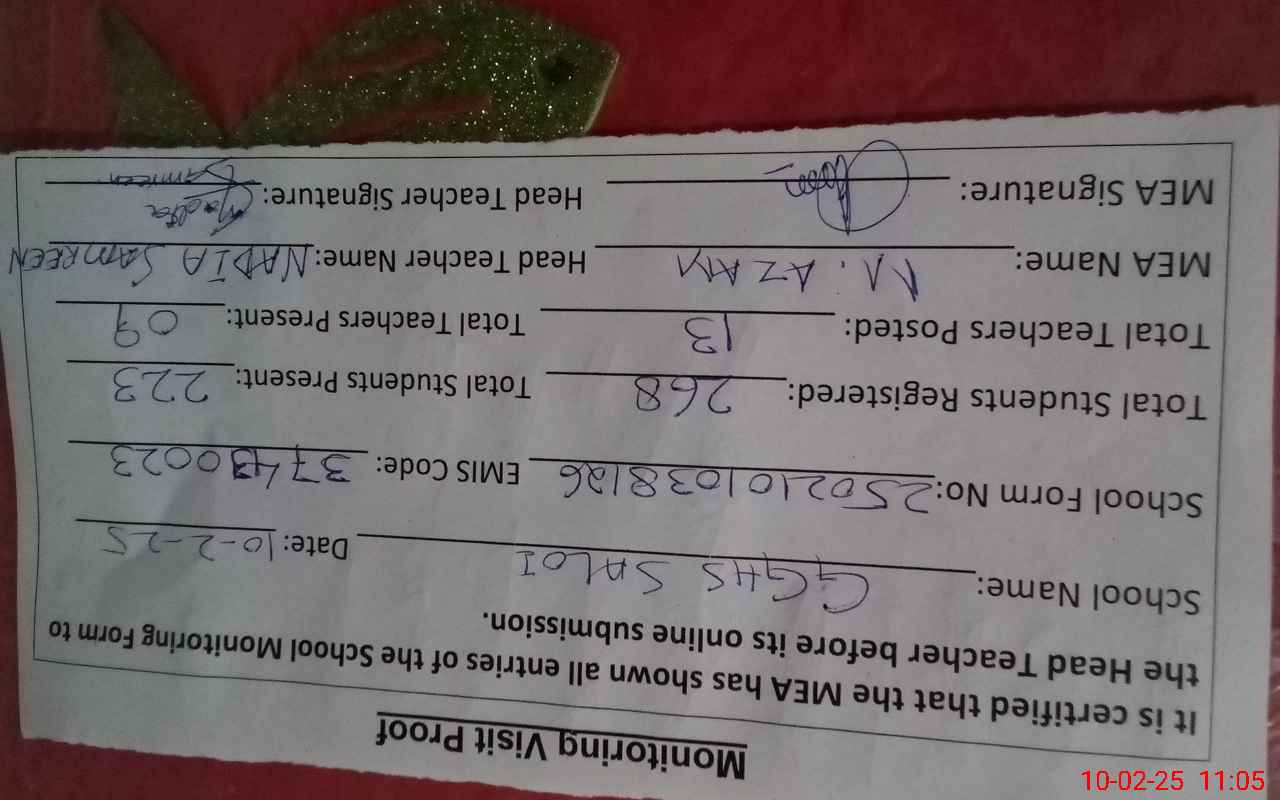 Monitoring Visit Proof
It is certified that the MEA has shown all entries of the School Monitoring Form to
the Head Teacher before its online submission.
School Name: GGHS SALOI Date: 10-2-25
School Form No: 2502101038126 EMIS Code: 37430023
Total Students Registered: 268 Total Students Present: 223
Total Teachers Posted: 13 Total Teachers Present: 09
MEA Name: M. AZAM Head Teacher Name: NADIA SAMREEN
MEA Signature: Head Teacher Signature: Nadia
Samreen
10-02-25 11:05